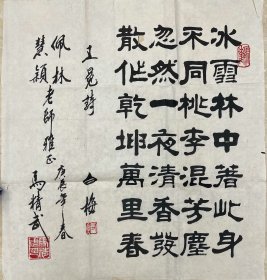 冰雪林中著此身
不同桃李混芳塵
忽然一夜清香發
散作乾坤萬里春
王冕詩 白梅
佩林
慧穎老師雅正
庚辰年春
馬精武